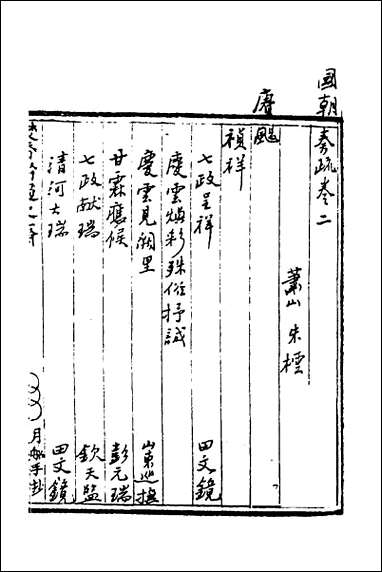 國朝
奏疏卷二
蕭山 朱橒
賡颺
禎祥
七政呈祥 田文鏡
慶雲煥彩殊俗抒誠
慶雲見闕里 山東巡撫
甘霖應候 彭元瑞
七政獻瑞 欽天監
清河大瑞 田文鏡
月船手抄